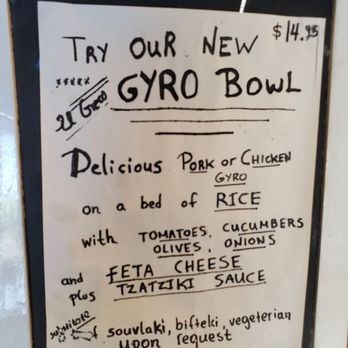 TRY OUR NEW
$14.95
GYRO BOWL
Delicious PORK or CHICKEN
GYRO
on a bed of RICE
with TOMATOES, CUCUMBERS
OLIVES, ONIONS
and FETA CHEESE
plus TZATZIKI SAUCE
souvlaki, bifteki, vegeterian
upon request